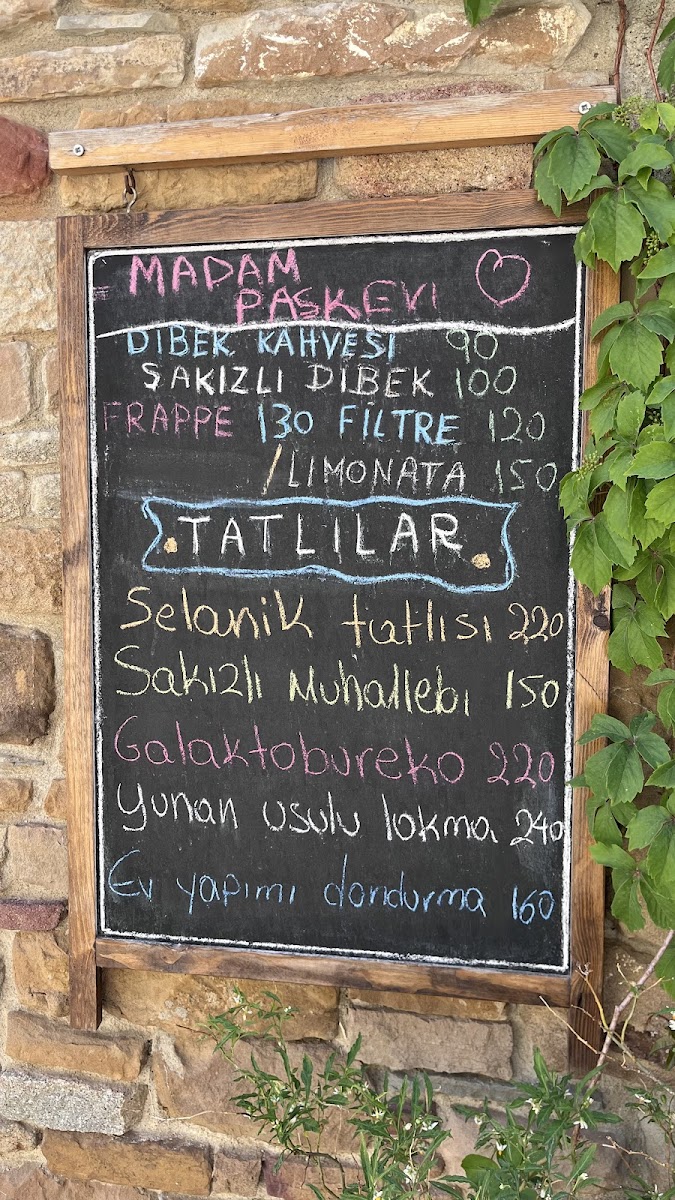 MADAM
PASKEVI
DİBEK KAHVESİ 90
SAKIZLI DİBEK 100
FRAPPE 130 FİLTRE 120
/LIMONATA 150
TATLILAR
Selanik tatlısı 220
Sakızlı Muhallebi 150
Galaktobureko 220
Yunan usulu lokma 240
Ev yapımı dondurma 160